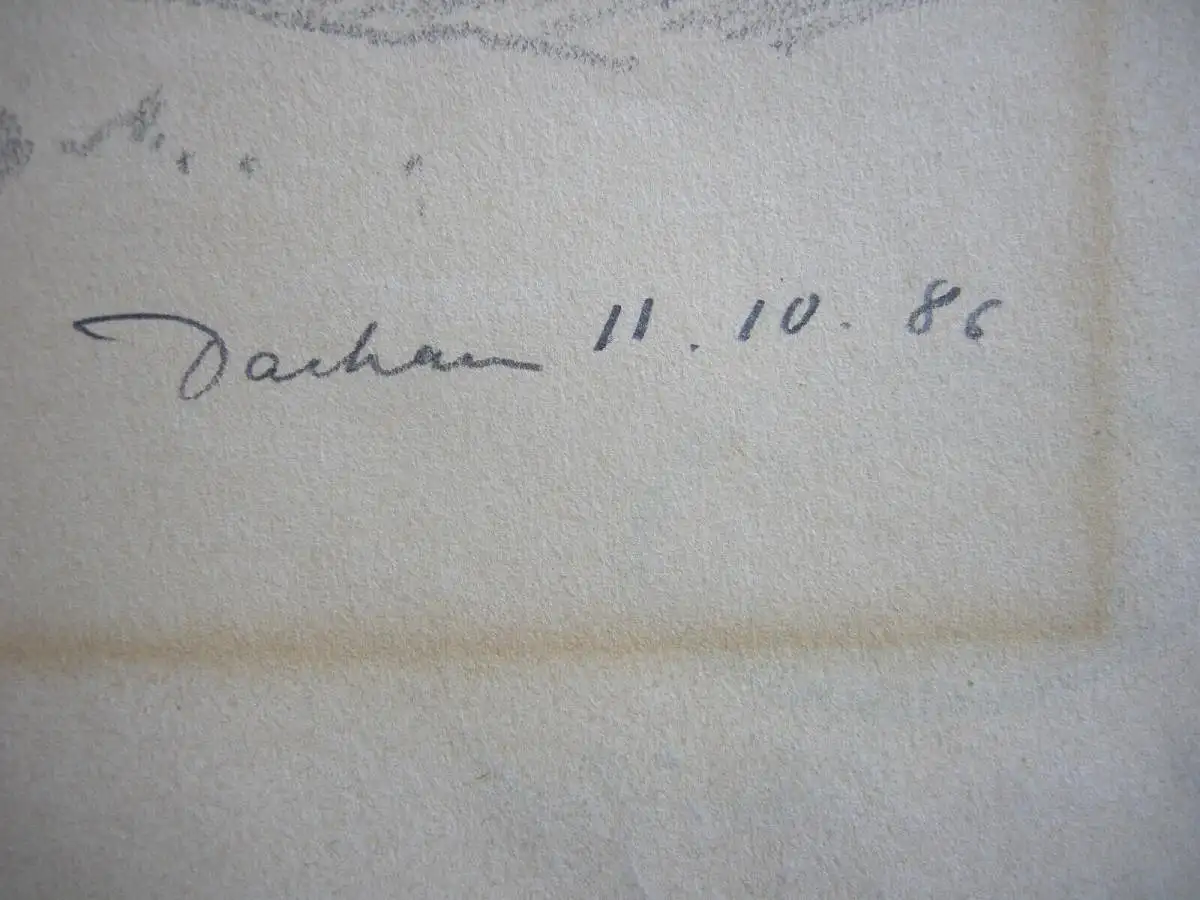 Dachau 11. 10. 86